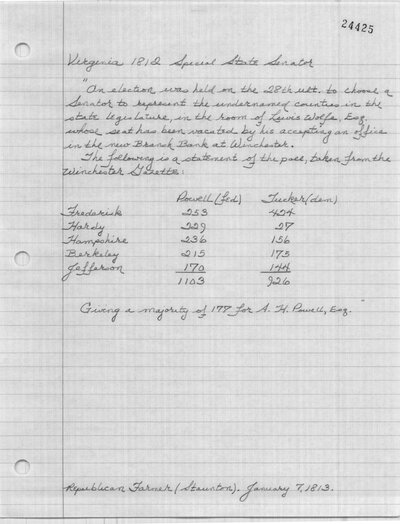 24425
Virginia 1812 Special State Senator
"An election was held on the 28th ult. to choose a
Senator to represent the undernamed counties in the
state legislature, in the room of Lewis Wolfe, Esq.
whose seat has been vacated by his accepting an office
in the new Branch Bank at Winchester.
The following is a statement of the poll, taken from the
Winchester Gazette:
Powell (fed) Tucker (dem)
Frederick 253 424
Hardy 229 27
Hampshire 236 156
Berkeley 215 175
Jefferson 170 144
1103 926
Giving a majority of 177 for A. H. Powell, Esq.
Republican Farmer (Staunton). January 7, 1813.